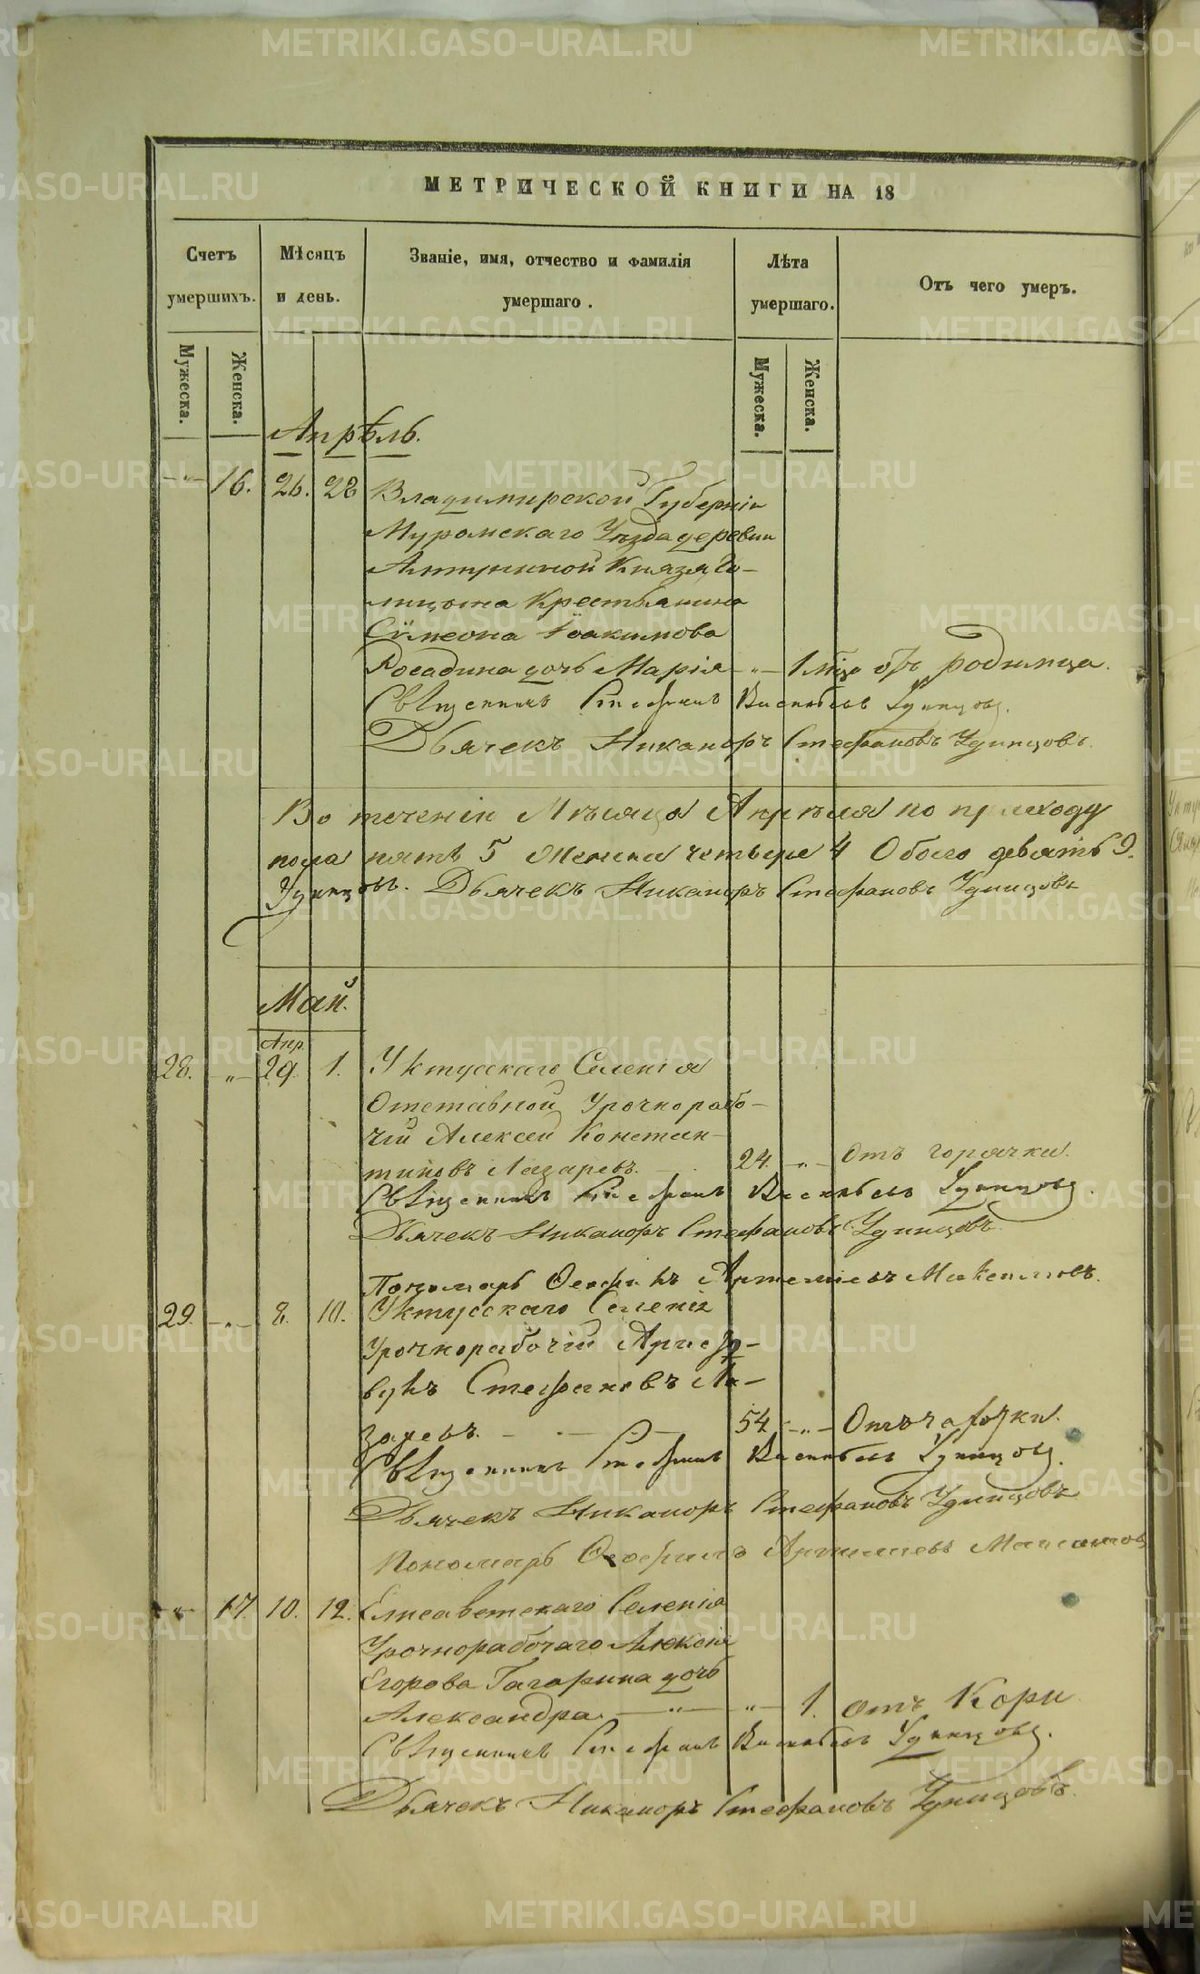 МЕТРИЧЕСКОЙ КНИГИ НА 18
Счетъ умершихъ.
Мѣсяцъ и день.
Званіе, имя, отчество и фамилія умершаго.
Лѣта умершаго.
Отъ чего умеръ.
Мужеска.
Женска.
Мужеска.
Женска.
Апрѣль.
-"- 16. 26. 28 Владимирской Губерніи
Муромскаго Уѣзда деревни
Князя Го-
лицына Крестьянина
Сѵмеона Іоакимова
Росадина дочь Марія -"- 1 мѣц отъ родимца.
Священникъ Стефанъ Удинцовъ.
Дьячекъ Никаноръ Стефановъ Удинцовъ.
Во теченіи Мѣсяца Апрѣля по приходу
пола пять 5 Женска четыре 4 Обоего девять 9.
Удинцовъ. Дьячекъ Никаноръ Стефановъ Удинцовъ
Май.
Апр.
28. -"- 29. 1. Уктусскаго Селенія
Отставной Урочнорабо-
чій Алексей Констан-
тиновъ Лазаревъ. 24. -"- Отъ горячки.
Священникъ Стефанъ Удинцовъ.
Дьячекъ Никаноръ Стефановъ Удинцовъ
Пономарь Артемьевъ Максимовъ.
29. -"- 8. 10. Уктусскаго Селенія
Урочнорабочій
Стефановъ Ла-
заревъ. 54 -"- Отъ чахотки.
Священникъ Стефанъ Удинцовъ.
Дьячекъ Никаноръ Стефановъ Удинцовъ
Пономарь Максимовъ
-"- 17. 10. 12. Елисаветскаго Селенія
Урочнорабочаго
Егорова Гагарина дочь
Александра. -"- -"- 1. отъ Кори
Священникъ Стефанъ Удинцовъ.
Дьячекъ Никаноръ Стефановъ Удинцовъ.
METRIKI.GASO-URAL.RU